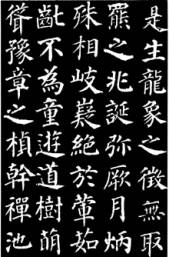 是生龍象之徵無取
羆之兆誕弥厥月炳
殊相岐嶷絕於葷茹
齔不為童遊道樹萠
聳豫章之楨幹禪池